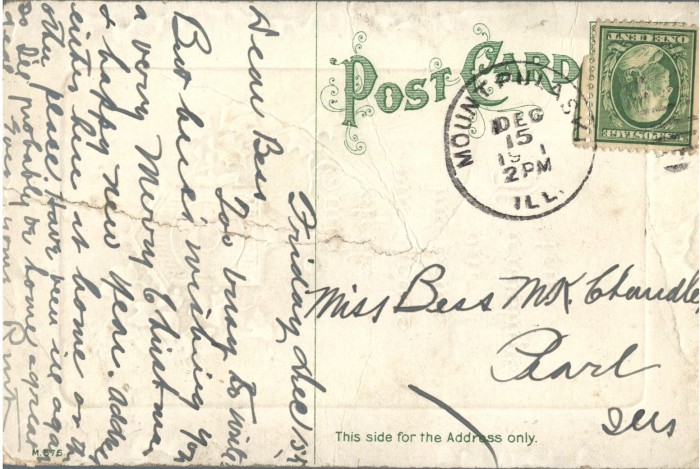 POST CARD
MOUNT PULASKI
DEC
15
2 PM
ILL.
U.S. POSTAGE
ONE CENT
Friday, Dec 15th
Dear Bess
Too busy to write
But here's wishing you
a very Merry Christmas
& happy new year. Address
either here at home or the
other place. Have been ill again
so I'll probably be home
Miss Bess McK. Chandler
Pearl
Ills
This side for the Address only.